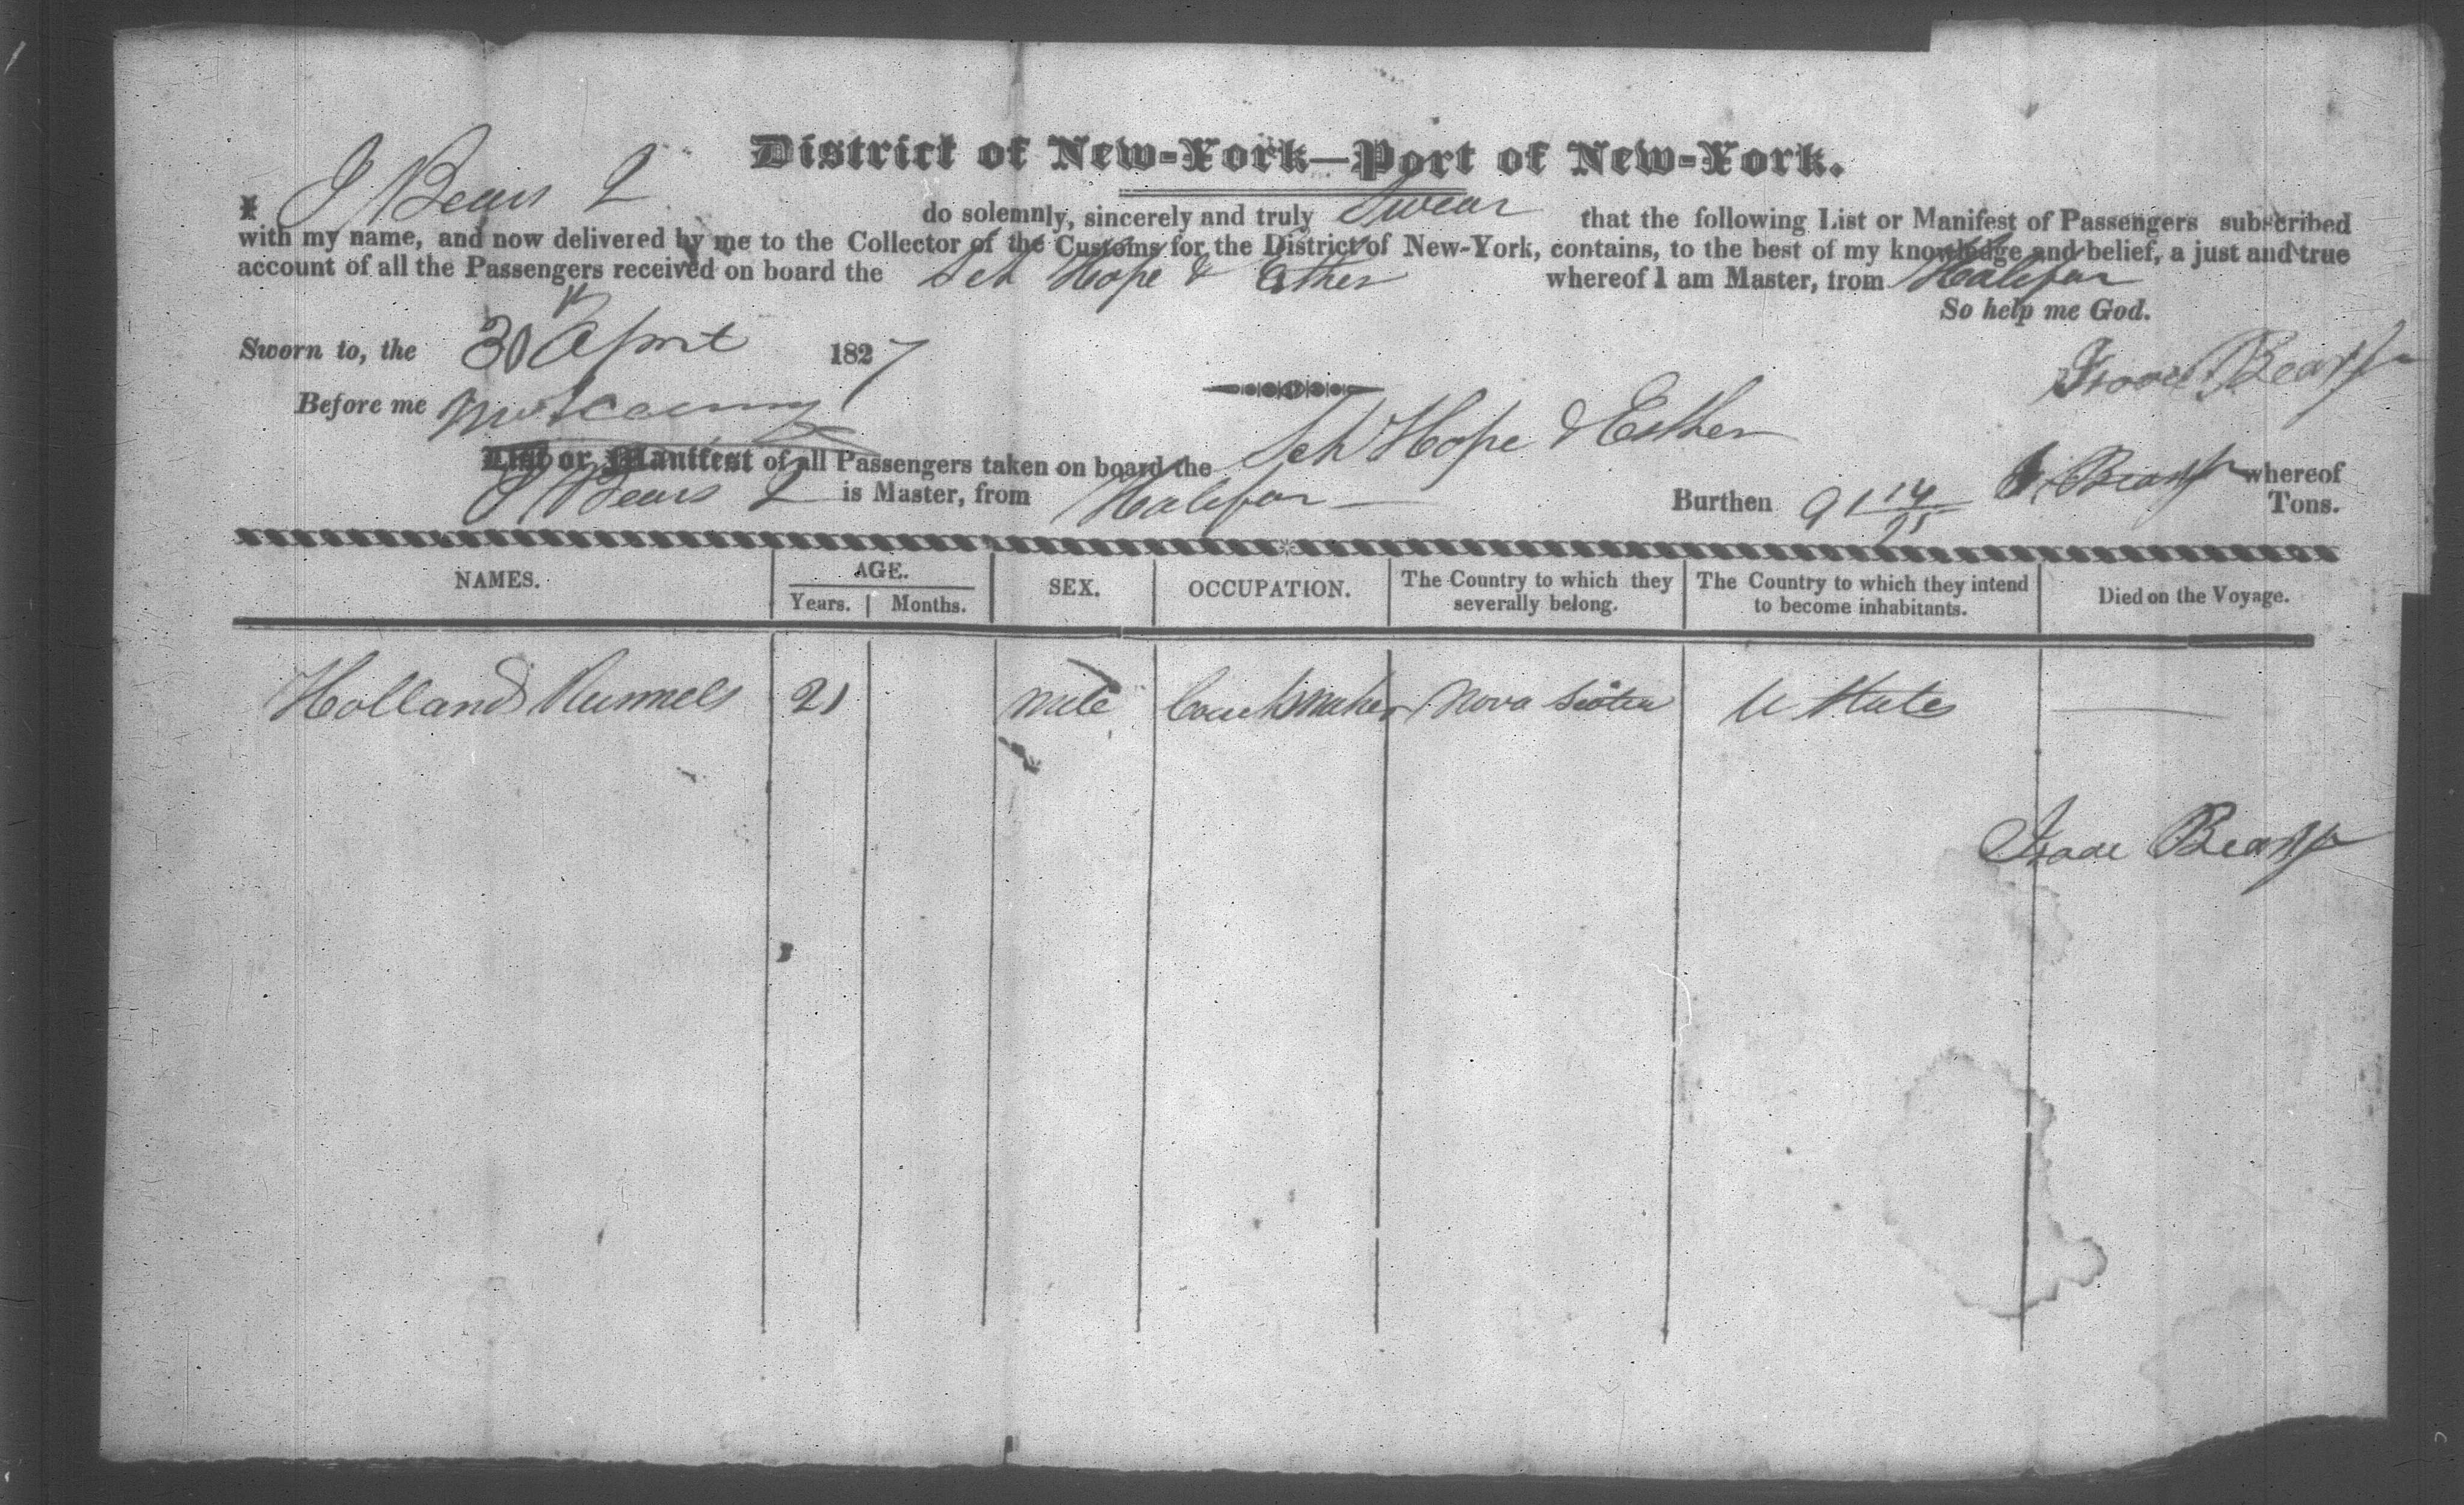 District of New-York—Port of New-York.
I J Bears 2 do solemnly, sincerely and truly Swear that the following List or Manifest of Passengers subscribed
with my name, and now delivered by me to the Collector of the Customs for the District of New-York, contains, to the best of my knowledge and belief, a just and true
account of all the Passengers received on board the Sch Hope & Esther whereof I am Master, from Halifax
So help me God.
Sworn to, the 30 April 1827
Before me
Bears
List or Manifest of all Passengers taken on board the Sch Hope & Esther whereof
J Bears 2 is Master, from Halifax — Burthen 91 14/95 Tons.
NAMES. AGE. SEX. OCCUPATION. The Country to which they severally belong. The Country to which they intend to become inhabitants. Died on the Voyage.
Years. Months.
Holland Runnels 21 male Coachmaker Nova Scotia U States —
Bears